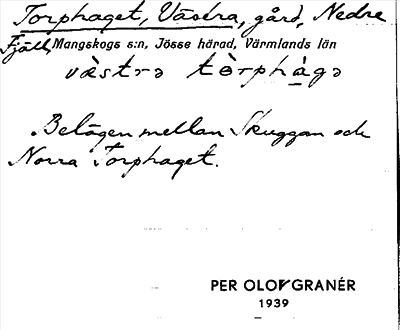 Torphaget, Västra, gård, Nedre
Fjäll, Mangskogs s:n, Jösse härad, Värmlands län
væ̀strə tòrphà̱gə
Belägen mellan Skuggan och
Norra Torphaget.
PER OLOF GRANÉR
1939